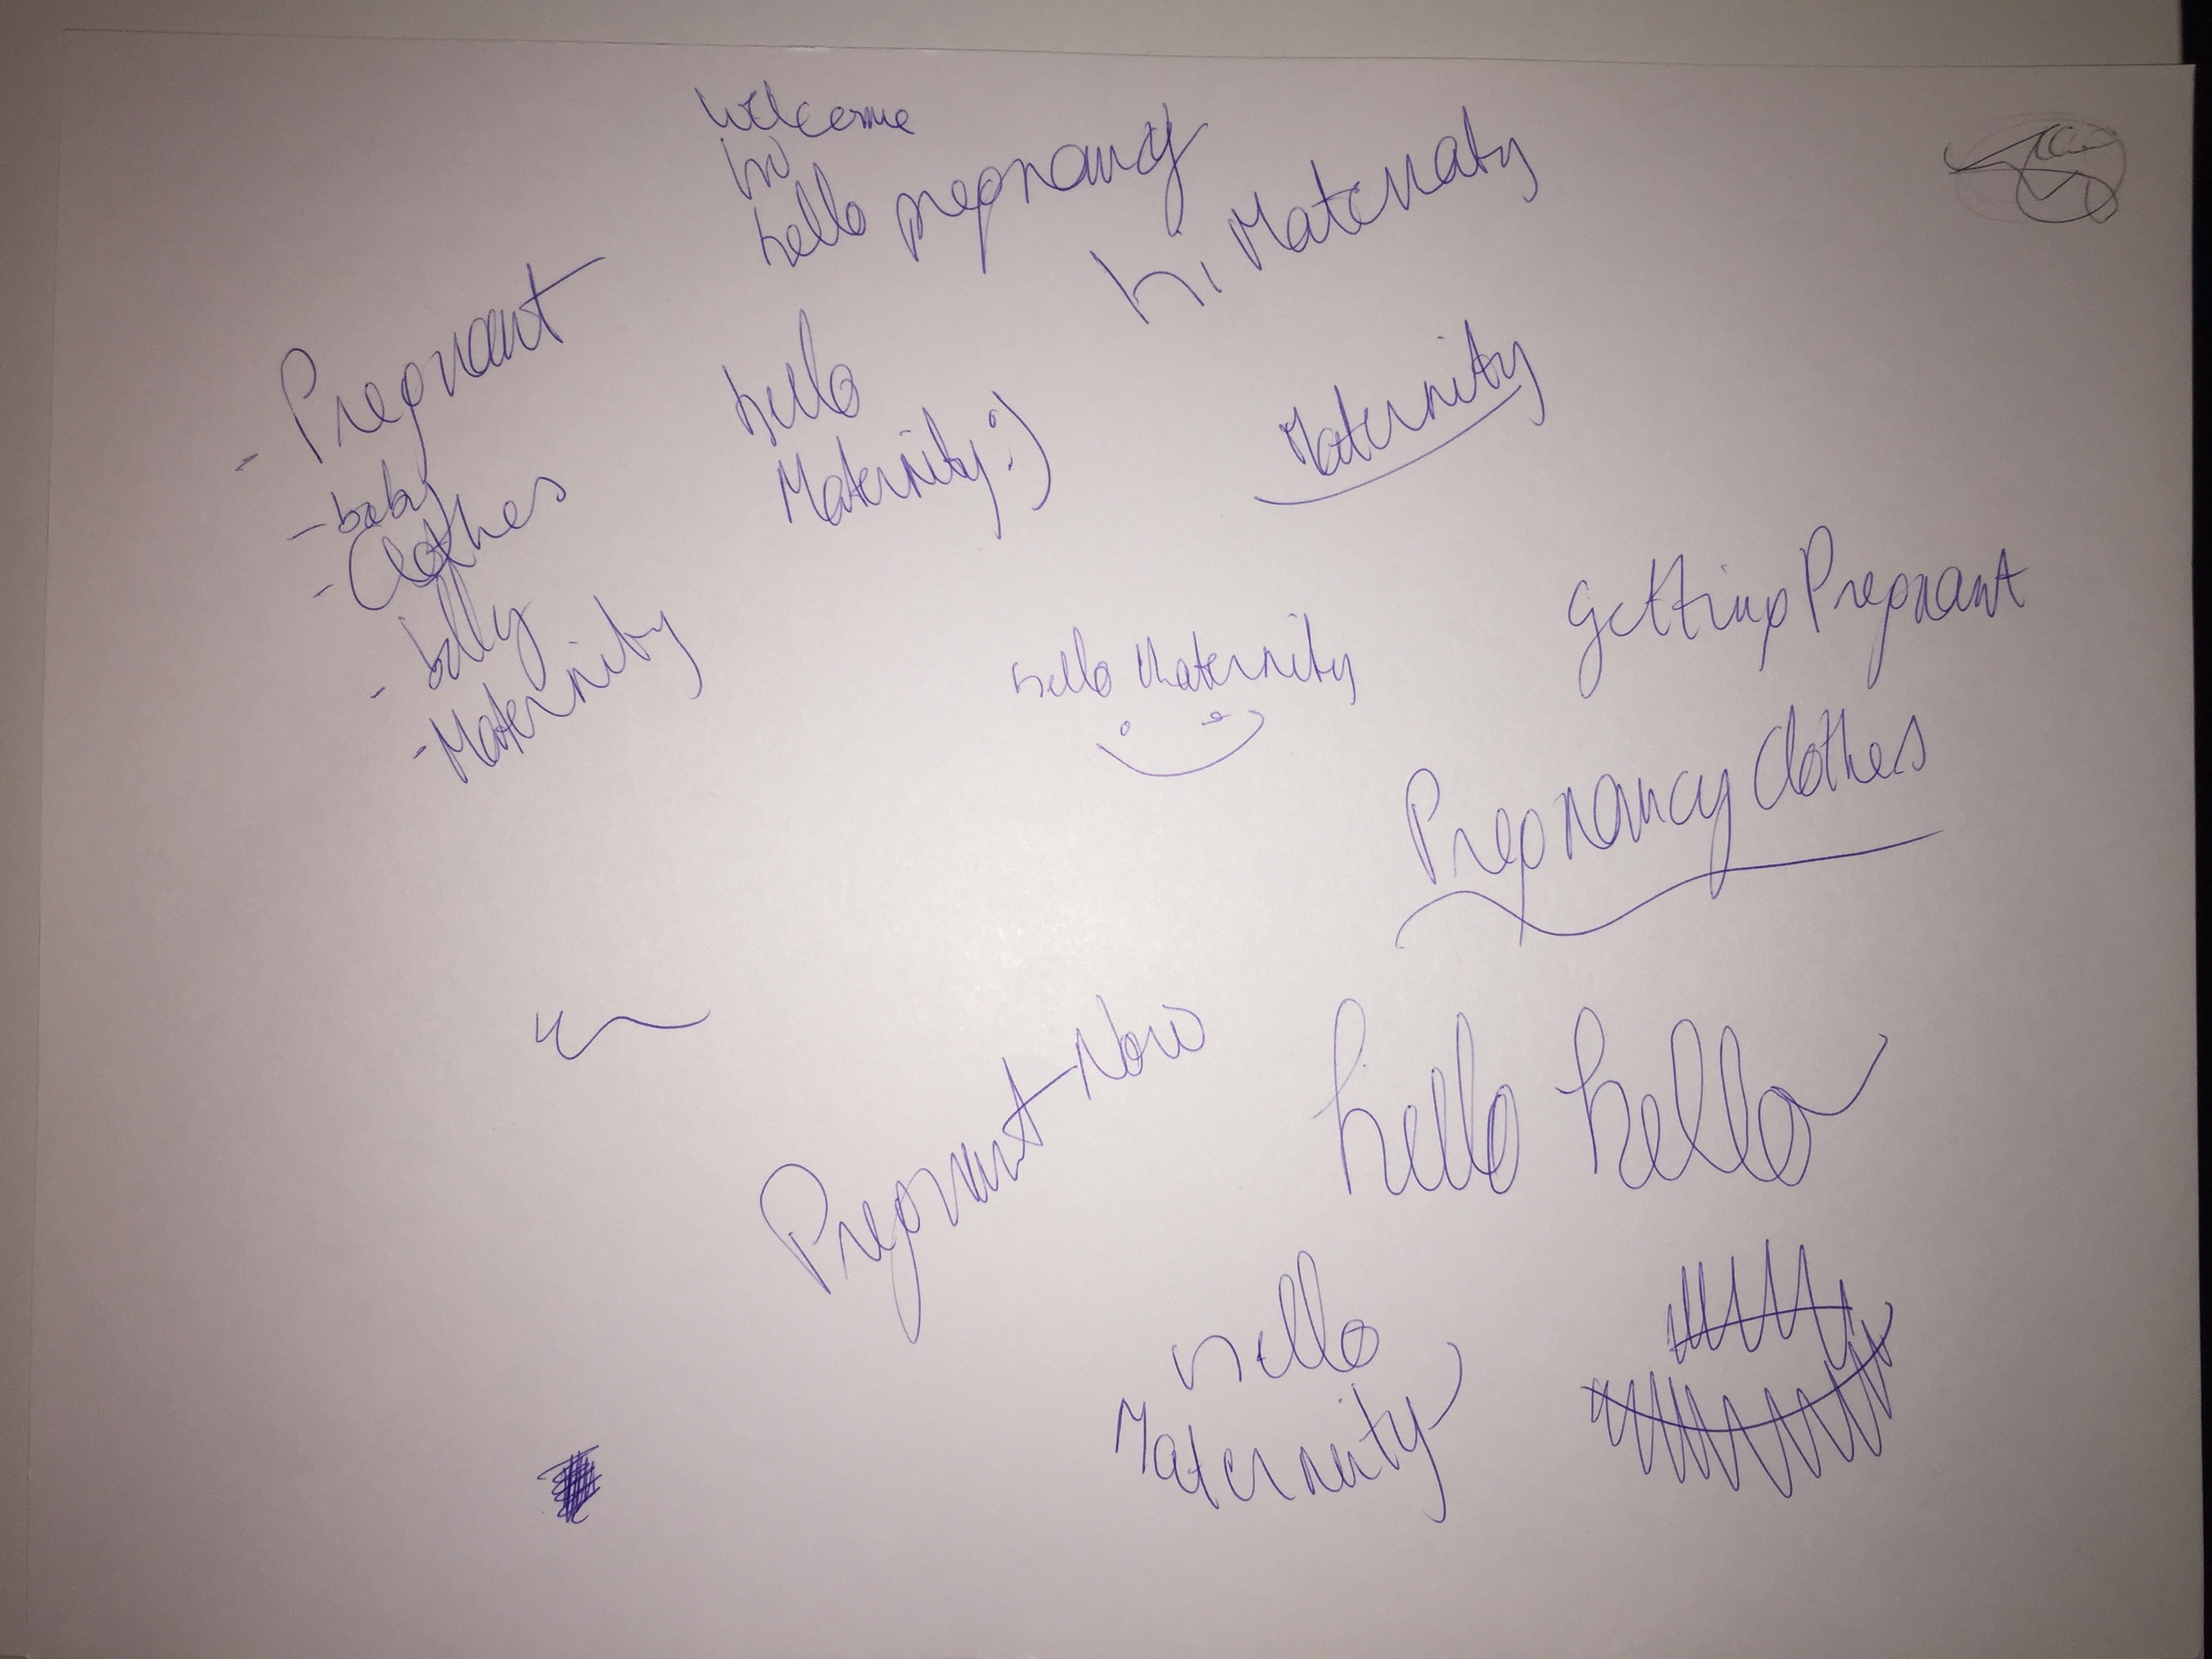 welcome
hi
hello pregnancy
hi Maternaty
- Pregnant
- baby
- Clothes
- belly
- Maternity
hello
Maternity :)
Maternity
Getting Pregnant
hello Maternity
Pregnancy Clothes
Pregnant Now
hello hello
hello
Maternity